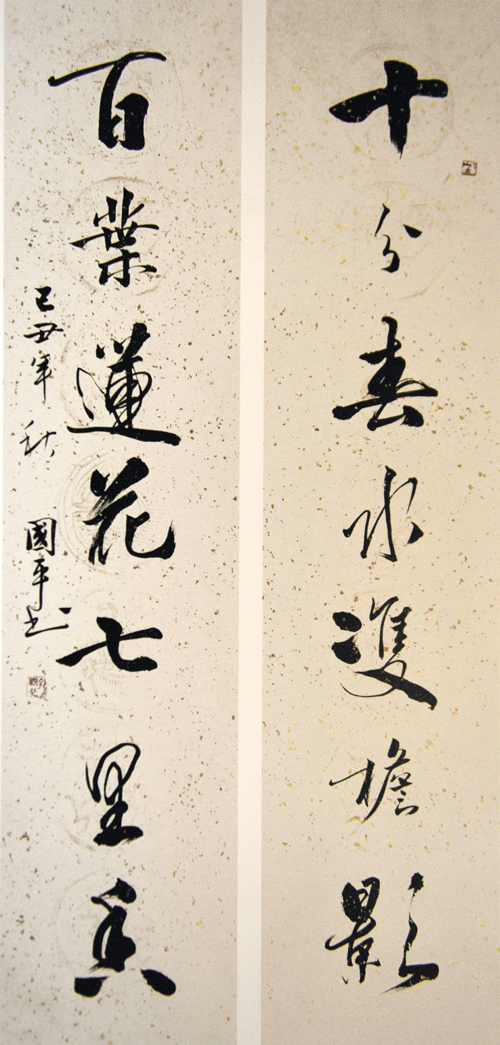 十分春水雙檐影
百葉蓮花七里香
己丑年秋 國平书